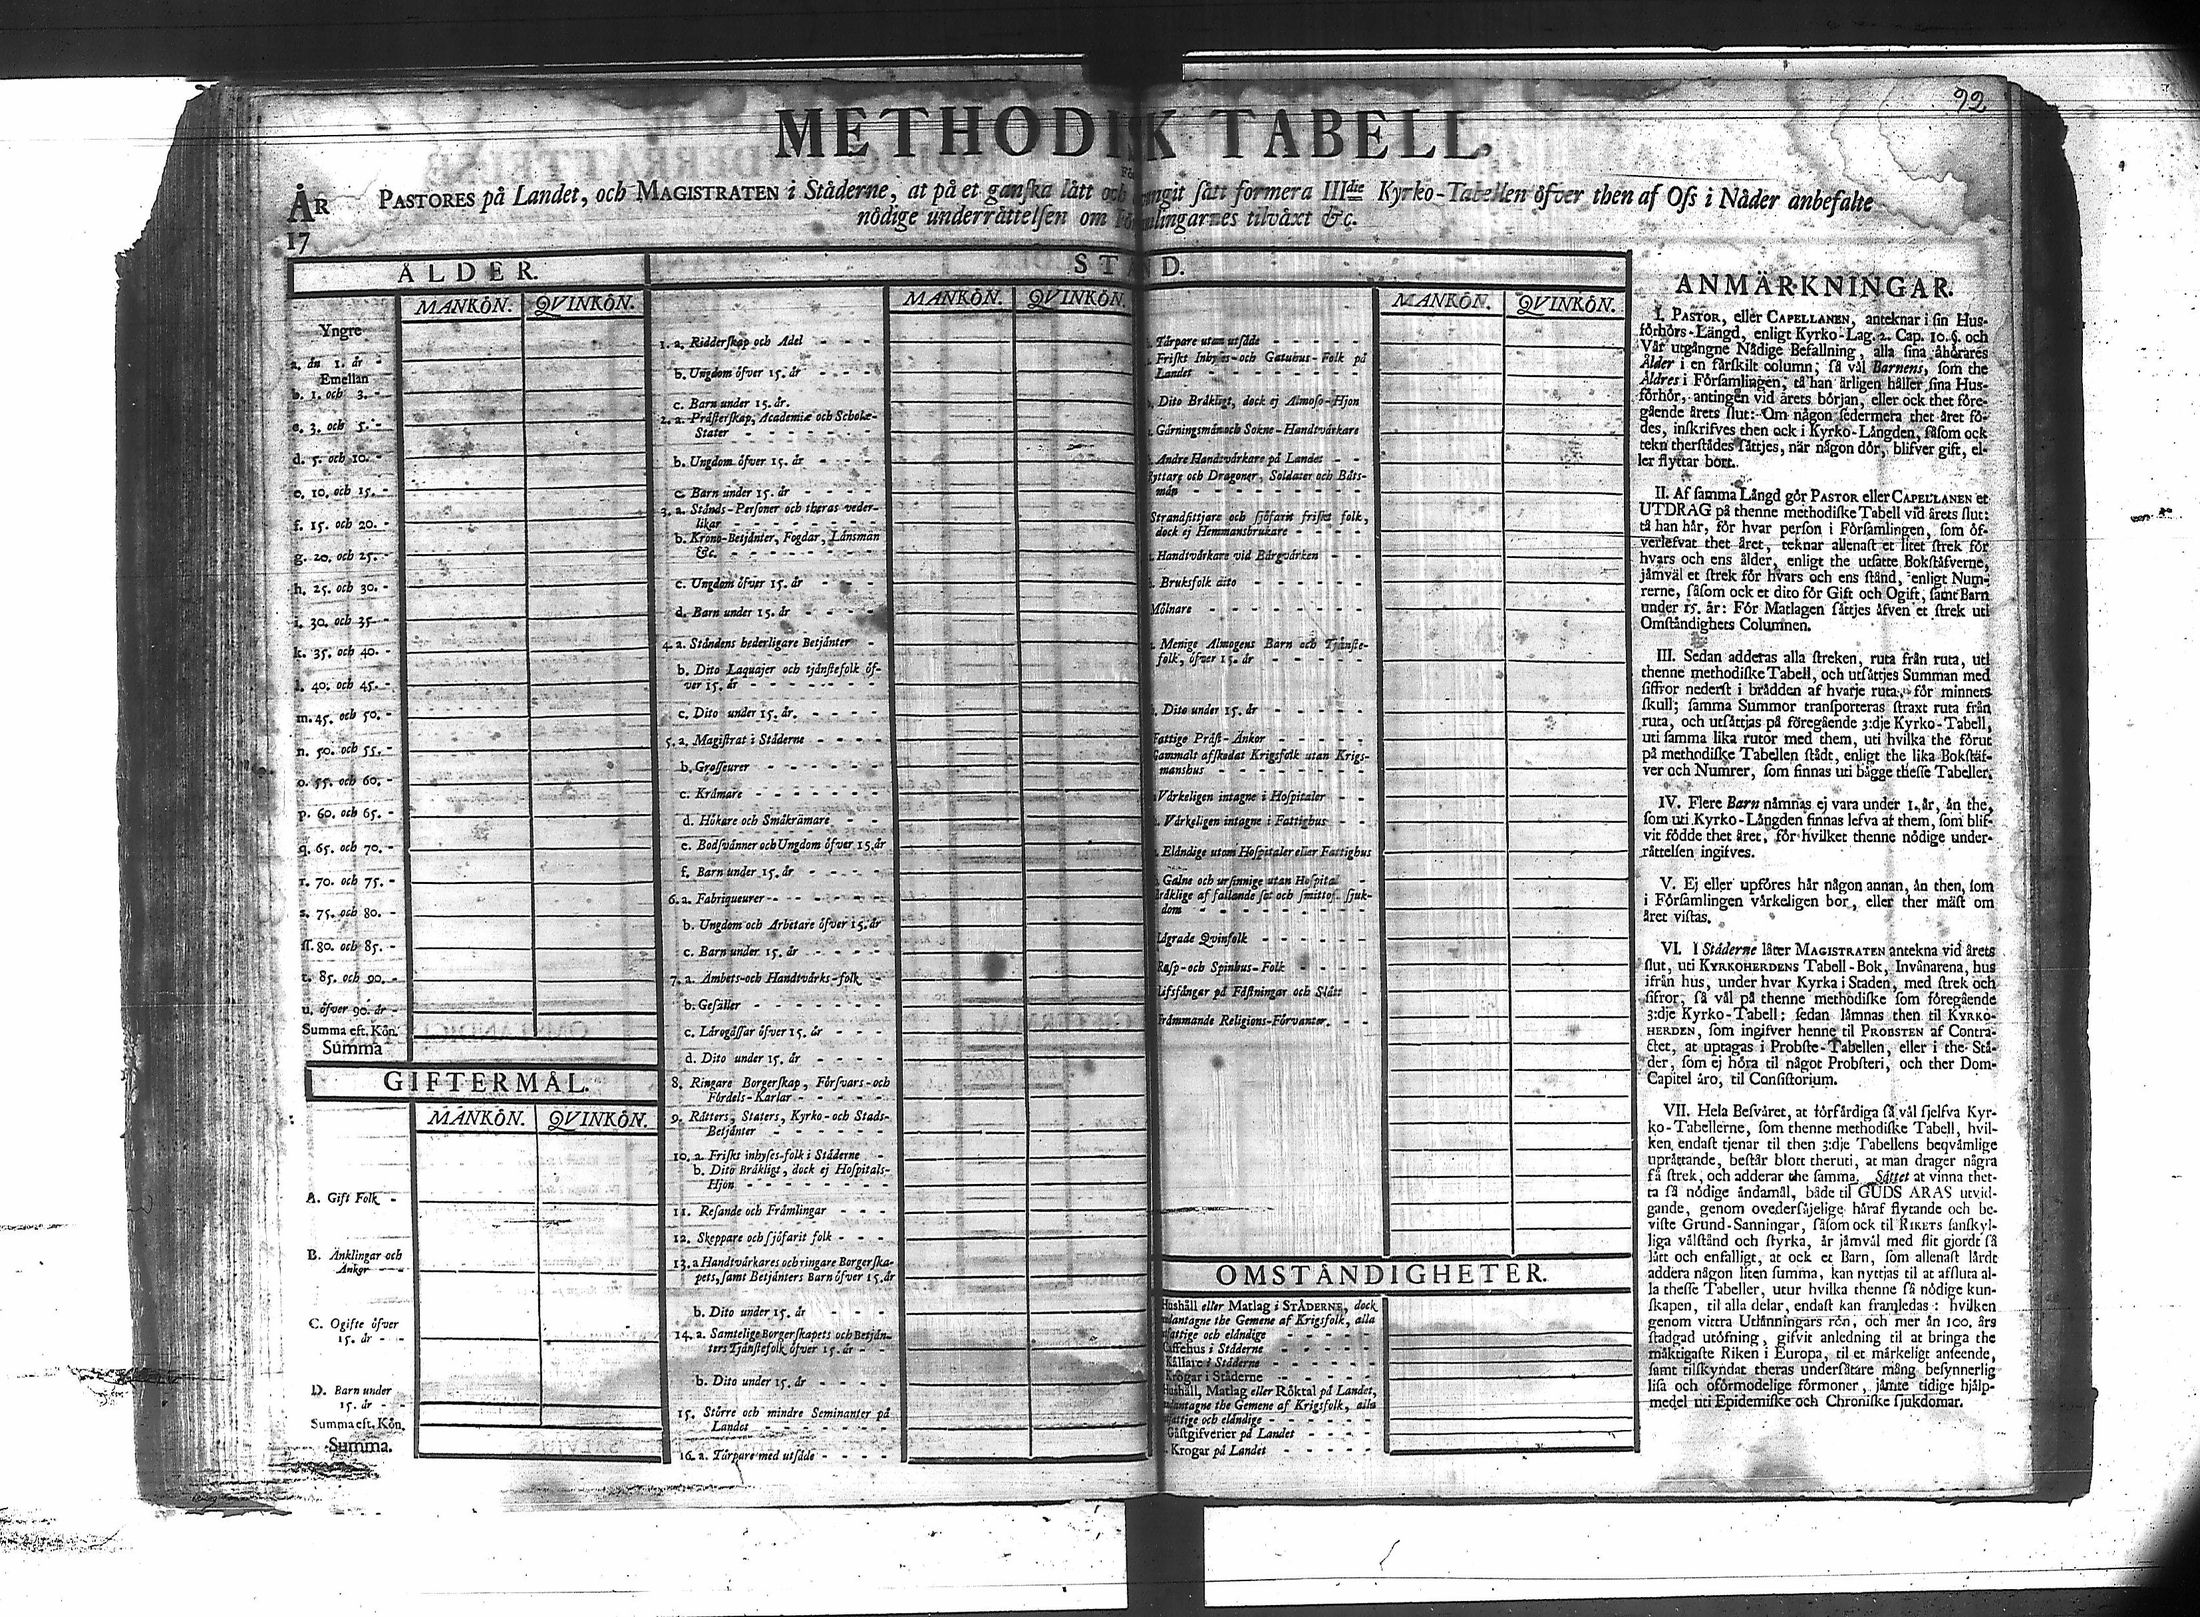 92
METHODISK TABELL,
ÅR
17
PASTORES på Landet, och MAGISTRATEN i Ståderne, at på et ganſka lått och ſått formera IIIdie Kyrko-Tabellen öfver then af Oſs i Nåder anbefalte
nödige underråttelſen om tilvåxt &c.
ÅLDER.
MANKÖN. QVINKÖN.
Yngre
a. ån 1. år -
Emellan
b. 1. och 3. -
c. 3. och 5. -
d. 5. och 10. -
e. 10. och 15. -
f. 15. och 20. -
g. 20. och 25. -
h. 25. och 30. -
i. 30. och 35 -
k. 35. och 40. -
l. 40. och 45. -
m. 45. och 50. -
n. 50. och 55. -
o. 55. och 60. -
p. 60. och 65. -
q. 65. och 70. -
r. 70. och 75. -
s. 75. och 80. -
ſſ. 80. och 85. -
t. 85. och 90. -
u. öfver 90. år -
Summa eft. Kön.
Summa
GIFTERMÅL.
MANKÖN. QVINKÖN.
A. Gift Folk -
B. Änklingar och
Ånkor
C. Ogifte öfver
15. år - -
D. Barn under
15. år - -
Summa eft. Kön.
Summa.
STÅND.
MANKÖN. QVINKÖN.
1. a. Ridderſkap och Adel
b. Ungdom öfver 15. år - - - -
c. Barn under 15. år.
2. a. Pråſterſkap, Academiæ och Scholæ-
Stater - - - - - -
b. Ungdom öfver 15. år - - - -
c. Barn under 15. år - - - - -
3. a. Stånds-Perſoner och theras veder-
likar - - - - - -
b. Krono-Betjånter, Fogdar, Lånsmån
&c. - - - - - - -
c. Ungdom öfver 15. år - - - -
d. Barn under 15. år - - - - -
4. a. Ståndens hederligare Betjånter -
b. Dito Laquajer och tjånſtefolk öf-
ver 15. år - - - - - -
c. Dito under 15. år. - - - -
5. a. Magiſtrat i Ståderne - - - -
b. Groſſeurer - - - - - -
c. Kråmare - - - - - - -
d. Hökare och Småkråmare - -
e. Bodſvånner och Ungdom öfver 15. år
f. Barn under 15. år - - - -
6. a. Fabriqueurer - - - - - -
b. Ungdom och Arbetare öfver 15. år
c. Barn under 15. år - - - -
7. a. Åmbets-och Handtvårks-folk
b. Geſåller - - - - - - -
c. Lårogåſſar öfver 15. år - - -
d. Dito under 15. år - - - -
8. Ringare Borgerſkap, Förſvars-och
Fördels-Karlar - - - - -
9. Råtters, Staters, Kyrko-och Stads-
Betjånter - - - - - -
10. a. Friſkt inhyſes-folk i Ståderne -
b. Dito Bråkligt, dock ej Hoſpitals-
Hjon - - - - - -
11. Reſande och Fråmlingar - - -
12. Skeppare och ſjöfarit folk - - -
13. a Handtvårkares och ringare Borgerſka-
pets, ſamt Betjånters Barn öfver 15. år
b. Dito under 15. år - - -
14. a. Samtelige Borgerſkapets och Betjån-
ters Tjånſtefolk öfver 15. år -
b. Dito under 15. år - - - -
15. Större och mindre Seminanter på
Landet - - - - - -
16. a. Torpare med utſåde - - - -
MANKÖN. QVINKÖN.
Torpare utan utſåde - - - - -
Friſkt Inhyſes-och Gatuhus-Folk på
Landet - - - - - - - -
Dito Bråkligt, dock ej Almoſo-Hjon
Gårningsmån och Sokne-Handtvårkare
Andre Handtvårkare på Landet - -
och Dragoner, Soldater och Båts-
mån - - - - - - - -
Strandſittjare och ſjöfarit friſkt folk,
dock ej Hemmansbrukare - - - -
Handtvårkare vid Bårgvårken - -
Bruksfolk dito - - - - - -
Mölnare - - - - - - - -
Menige Almogens Barn och Tjånſte-
folk, öfver 15. år - - - - -
Dito under 15. år - - - - -
Fattige Pråſt-Ånkor - - - - -
Gammalt afſkedat Krigsfolk utan Krigs-
manshus - - - - - - - -
Vårkeligen intagne i Hoſpitaler - -
Vårkeligen intagne i Fattighus - -
Elåndige utom Hoſpitaler eller Fattighus
Galne och urſinnige utan Hoſpital -
Bråklige af fallande ſot och ſmittoſ. ſjuk-
dom - - - - - - - -
Lågrade Qvinfolk - - - - -
Raſp-och Spinhus-Folk - - - -
Lifsfångar på Fåſtningar och Slått -
Fråmmande Religions-Förvanter. - -
OMSTÅNDIGHETER.
Hushåll eller Matlag i STÅDERNE, dock
undantagne the Gemene af Krigsfolk, alla
fattige och elåndige - - - - -
Caffehus i Ståderne - - - - -
Kållare i Ståderne - - - - -
Krogar i Ståderne - - - - -
Hushåll, Matlag eller Röktal på Landet,
undantagne the Gemene af Krigsfolk, alla
fattige och elåndige - - - - -
Gåſtgifverier på Landet - - - -
Krogar på Landet - - - - -
ANMÄRKNINGAR.
I. PASTOR, eller CAPELLANEN, anteknar i ſin Hus-
förhörs-Långd, enligt Kyrko-Lag. 2. Cap. 10. §. och
Vår utgångne Nådige Befallning, alla ſina åhörares
Ålder i en ſårſkilt column; ſå vål Barnens, ſom the
Åldres i Förſamlingen, tå han årligen håller ſina Hus-
förhör, antingen vid årets början, eller ock thet före-
gående årets ſlut: Om någon ſedermera thet året fö-
des, inſkrifves then ock i Kyrko-Långden, ſåſom ock
tekn therſtådes ſåttjes, når någon dör, blifver gift, el-
ler flyttar bort.
II. Af ſamma Långd gör PASTOR eller CAPELLANEN et
UTDRAG på thenne methodiſke Tabell vid årets ſlut:
tå han hår, för hvar perſon i Förſamlingen, ſom öf-
verlefvat thet året, teknar allenaſt et litet ſtrek för
hvars och ens ålder, enligt the utſatte Bokſtåfverne,
jåmvål et ſtrek för hvars och ens ſtånd, enligt Num-
rerne, ſåſom ock et dito för Gift och Ogift, ſamt Barn
under 15. år: För Matlagen ſåttjes åfven et ſtrek uti
Omſtåndighets Columnen.
III. Sedan adderas alla ſtreken, ruta från ruta, uti
thenne methodiſke Tabell, och utſåttjes Summan med
ſiffror nederſt i brådden af hvarje ruta, för minnets
ſkull; ſamma Summor transporteras ſtraxt ruta från
ruta, och utſåttjas på föregående 3:dje Kyrko-Tabell,
uti ſamma lika rutor med them, uti hvilka the förut
på methodiſke Tabellen ſtådt, enligt the lika Bokſtåf-
ver och Numrer, ſom finnas uti bågge theſſe Tabeller.
IV. Flere Barn nåmnas ej vara under 1. år, ån the,
ſom uti Kyrko-Långden finnas lefva af them, ſom blif-
vit födde thet året, för hvilket thenne nödige under-
råttelſen ingifves.
V. Ej eller upföres hår någon annan, ån then, ſom
i Förſamlingen vårkeligen bor, eller ther måſt om
året viſtas.
VI. I Ståderne låter MAGISTRATEN antekna vid årets
ſlut, uti KYRKOHERDENS Tabell-Bok, Invånarena, hus
ifrån hus, under hvar Kyrka i Staden, med ſtrek och
ſifror, ſå vål på thenne methodiſke ſom föregående
3:dje Kyrko-Tabell: ſedan låmnas then til KYRKO-
HERDEN, ſom ingifver henne til PROBSTEN af Contra-
ctet, at uptagas i Probſte-Tabellen, eller i the Stå-
der, ſom ej höra til något Probſteri, och ther Dom-
Capitel åro, til Conſiſtorium.
VII. Hela Beſvåret, at förfårdiga ſå vål ſjelfva Kyr-
ko-Tabellerne, ſom thenne methodiſke Tabell, hvil-
ken endaſt tjenar til then 3:dje Tabellens beqvåmlige
upråttande, beſtår blott theruti, at man drager några
få ſtrek, och adderar the ſamma. Såttet at vinna thet-
ta ſå nödige åndamål, både til GUDS ARAS utvid-
gande, genom ovederſåjelige håraf flytande och be-
viſte Grund-Sanningar, ſåſom ock til RIKETS ſanſkyl-
liga vålſtånd och ſtyrka, år jåmvål med flit gjordt ſå
lått och enfalligt, at ock et Barn, ſom allenaſt lårdt
addera någon liten ſumma, kan nyttjas til at afſluta al-
la theſſe Tabeller, utur hvilka thenne ſå nödige kun-
ſkapen, til alla delar, endaſt kan framledas: hvilken
genom vittra Utlånningars rön, och mer ån 100. års
ſtadgad utöfning, gifvit anledning til at bringa the
måktigaſte Riken i Europa, til et mårkeligt anſeende,
ſamt tilſkyndat theras underſåtare mång beſynnerlig
liſa och oförmodelige förmoner, jåmte tidige hjålp-
medel uti Epidemiſke och Chroniſke ſjukdomar.